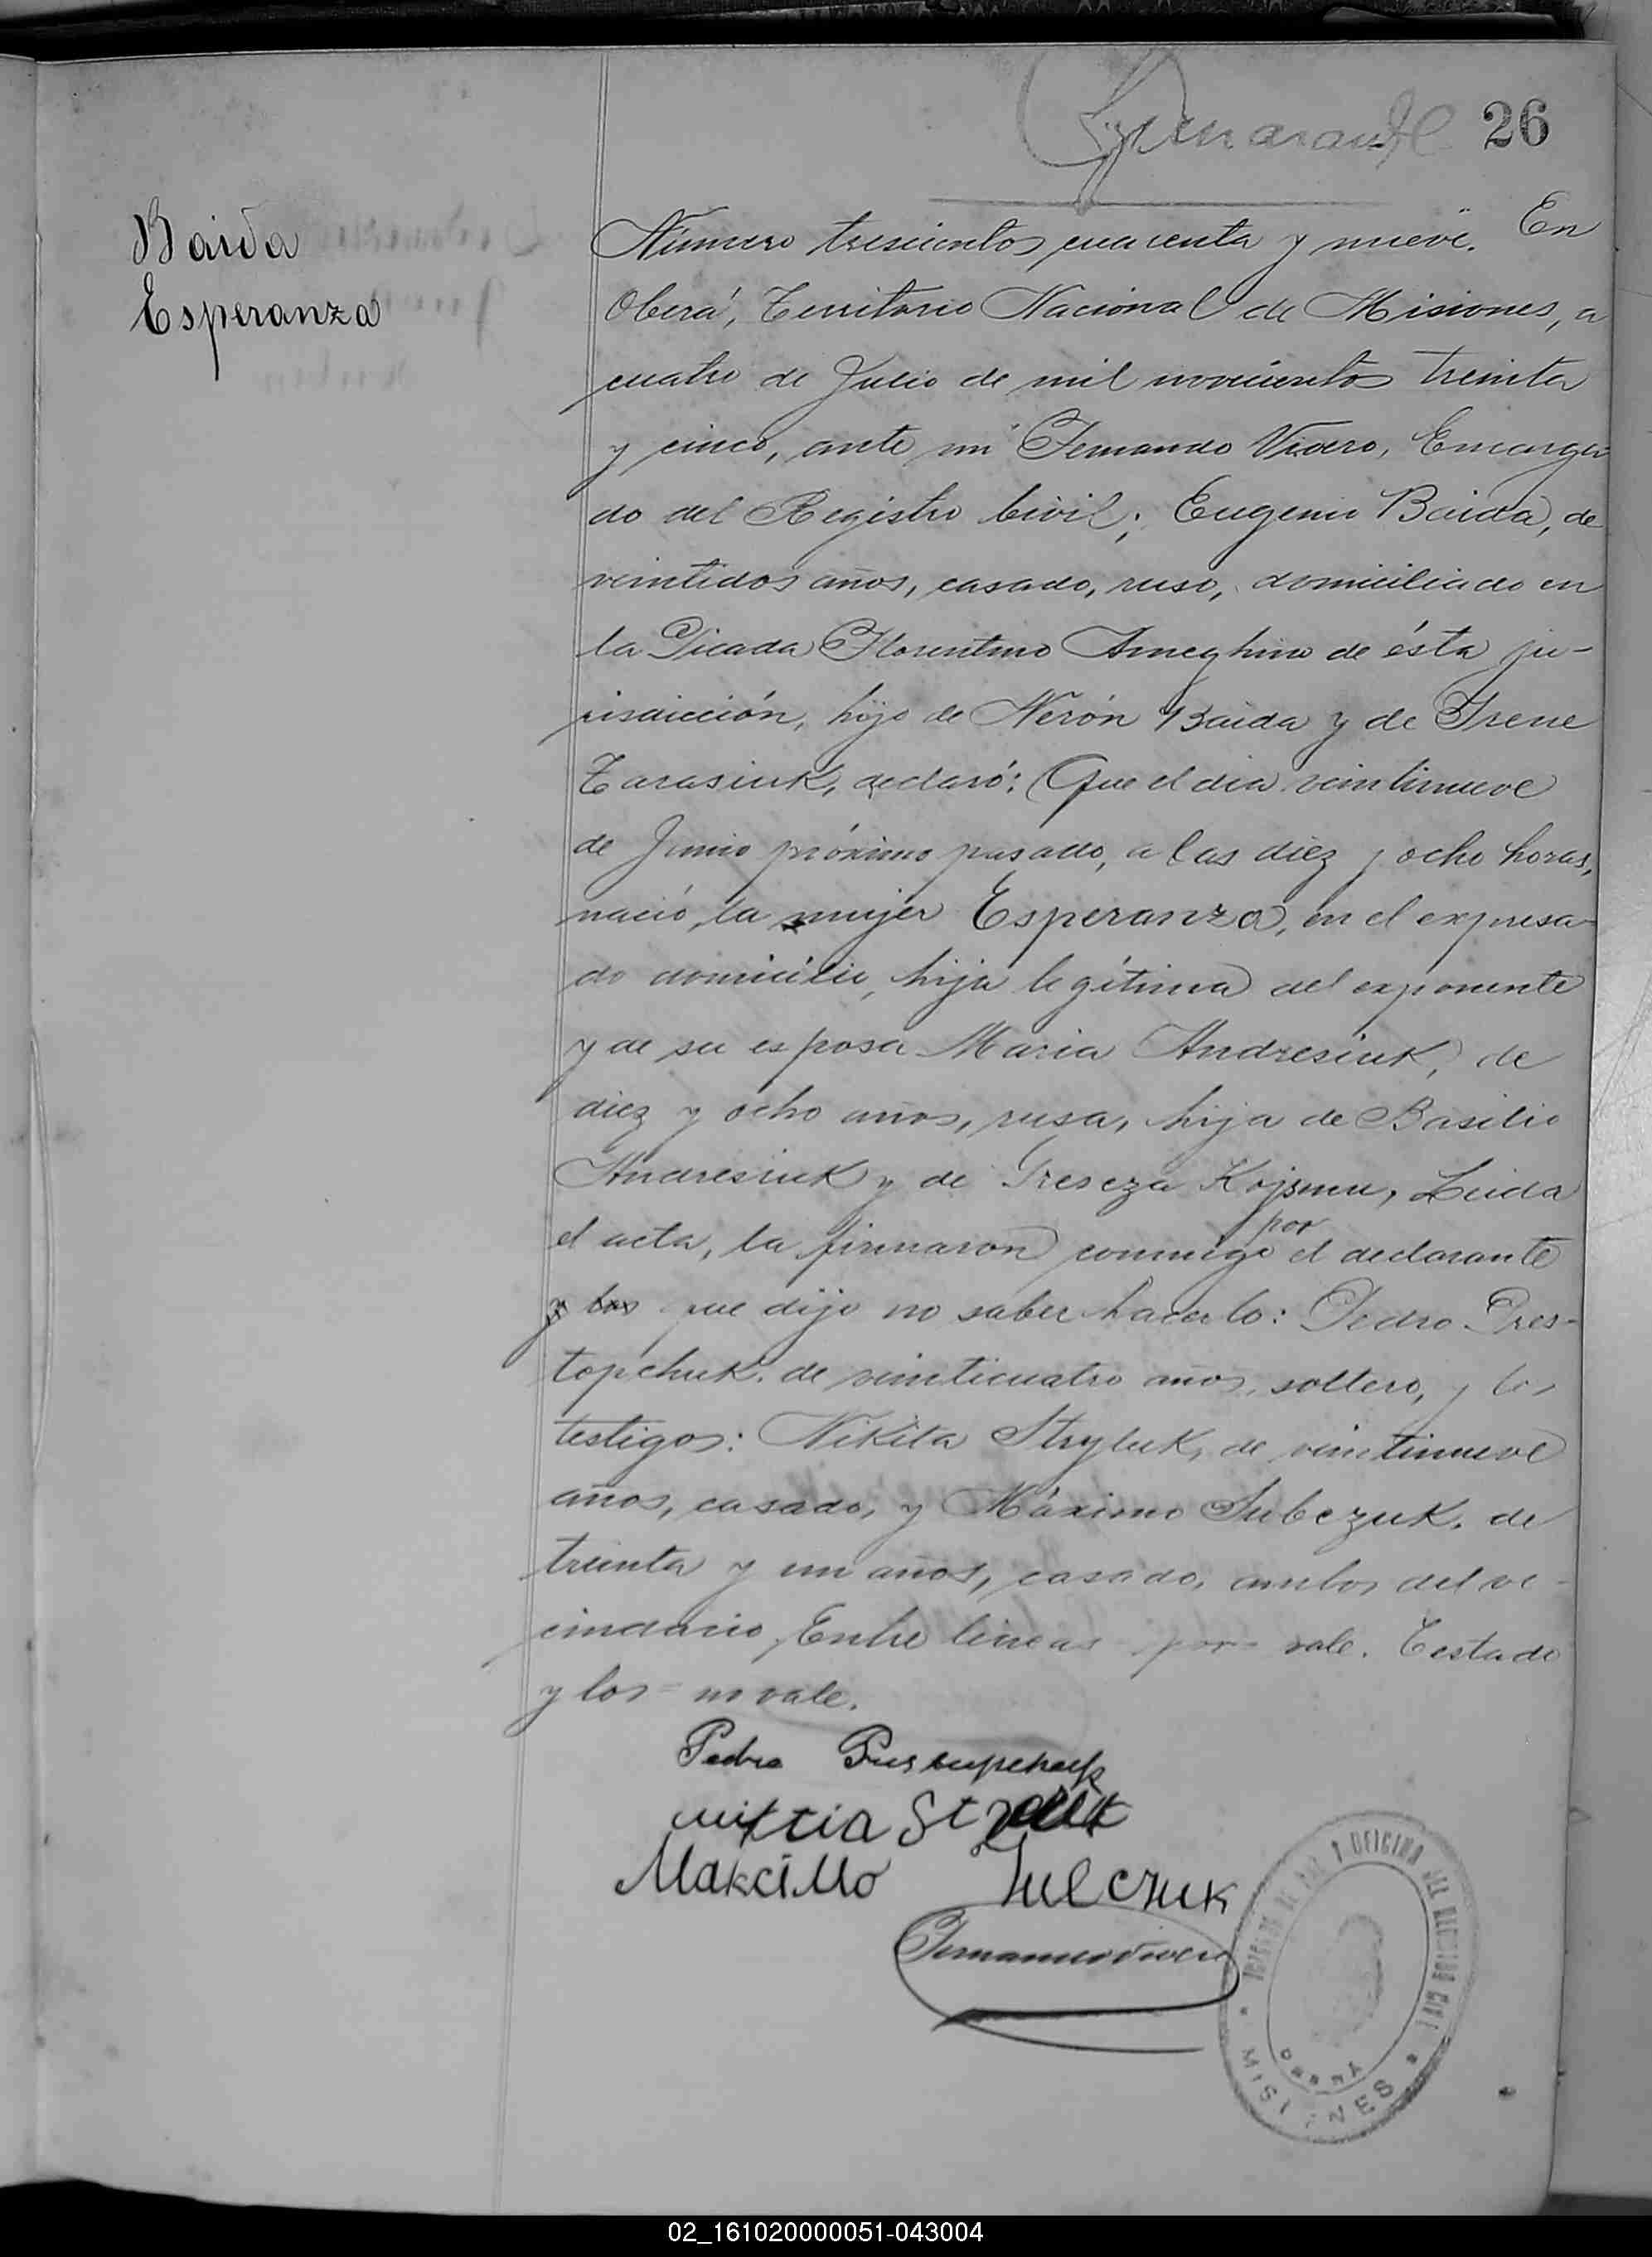 26
Baida
Esperanza
Número trescientos cuarenta y nueve. En
Oberá, Territorio Nacional de Misiones, a
cuatro de Julio de mil novecientos treinta
y cinco, ante mi Fernando Vivero, Encarga
do del Registro Civil; Eugenio Baida, de
veintidos años, casado, ruso, domiciliado en
la Picada Florentino Ameghino de ésta ju-
risdicción, hijo de Nerón Baida y de Irene
Tarasiuk, declaró: Que el dia veintinueve
de Junio próximo pasado, a las diez y ocho horas,
nació, la mujer Esperanza, en el expresa-
do domicilio, hija legítima del exponente
y de su esposa Maria Andresiuk, de
diez y ocho años, rusa, hija de Basilio
Andresiuk y de Kojsmu, Leida
por
el acta, la firmaron conmigo el declarante
y los que dijo no saber hacerlo: Pedro Pres-
topchuk, de veinticuatro años, soltero, y los
testigos: Nikita Stryluk, de veintinueve
años, casado, y Máximo de
treinta y un años, casado, ambos del ve-
cindario. Entre lineas - por - vale. Testado
y los = no vale.
Pedro
Fernando Vivero
OFICINA DEL REGISTRO CIVIL
OBERÁ
MISIONES
02_161020000051-043004